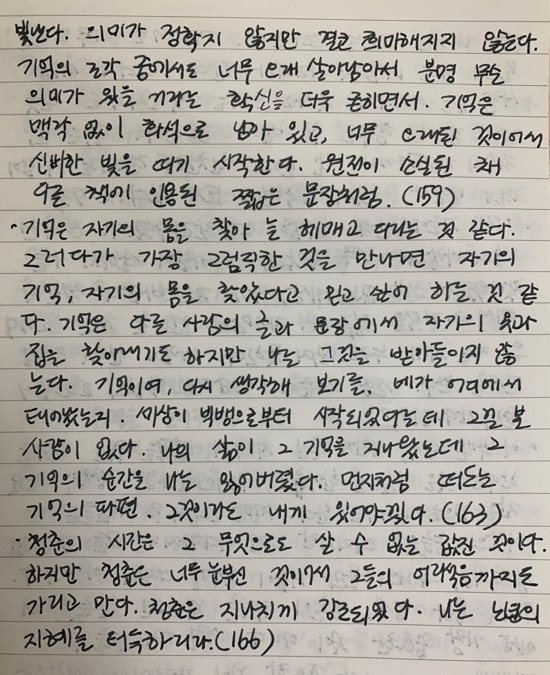 빛난다. 의미가 정확지 않지만 결코 희미해지지 않는다.
기억의 조각 중에서도 너무 오래 살아남아서 분명 무슨
의미가 있을 거라는 확신을 더욱 굳히면서. 기억은
맥락 없이 화석으로 남아 있고, 너무 오래된 것이어서
신비한 빛을 띠기 시작한다. 원전이 소실된 채
다른 책에 인용된 짧은 문장처럼. (159)
· 기억은 자기의 몸을 찾아 늘 헤매고 다니는 것 같다.
그러다가 가장 그럼직한 것을 만나면 자기의
기억, 자기의 몸을 찾았다고 믿고 싶어 하는 것 같
다. 기억은 다른 사람의 글과 문장에서 자기의 육과
집을 찾아내기도 하지만 나는 그것을 받아들이지 않
는다. 기억이여, 다시 생각해 보기를, 네가 어디에서
태어났는지. 세상이 빅뱅으로부터 시작되었다는데 그걸 본
사람이 없다. 나의 삶이 그 기억을 지나왔는데 그
기억의 순간을 나는 잃어버렸다. 먼지처럼 떠도는
기억의 파편. 그것이라도 내게 있어야겠다. (163)
· 청춘의 시간은 그 무엇으로도 살 수 없는 값진 것이다.
하지만 청춘은 너무 눈부신 것이어서 그들의 어리석음까지도
가리고 만다. 청춘은 지나치게 강조되었다. 나는 노년의
지혜를 터득하리라. (166)